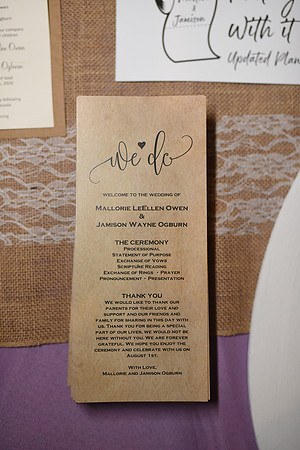 we do
WELCOME TO THE WEDDING OF
MALLORIE LEELLEN OWEN
&
JAMISON WAYNE OGBURN
THE CEREMONY
PROCESSIONAL
STATEMENT OF PURPOSE
EXCHANGE OF VOWS
SCRIPTURE READING
EXCHANGE OF RINGS - PRAYER
PRONOUNCEMENT - PRESENTATION
THANK YOU
WE WOULD LIKE TO THANK OUR
PARENTS FOR THEIR LOVE AND
SUPPORT AND OUR FRIENDS AND
FAMILY FOR SHARING IN THIS DAY WITH
US. THANK YOU FOR BEING A SPECIAL
PART OF OUR LIVES, WE WOULD NOT BE
HERE WITHOUT YOU. WE ARE FOREVER
GRATEFUL. WE HOPE YOU ENJOY THE
CEREMONY AND CELEBRATE WITH US ON
AUGUST 1ST.
WITH LOVE,
MALLORIE AND JAMISON OGBURN
&
Jamison
With it
Updated Plan
company
children
Owen
Ogburn